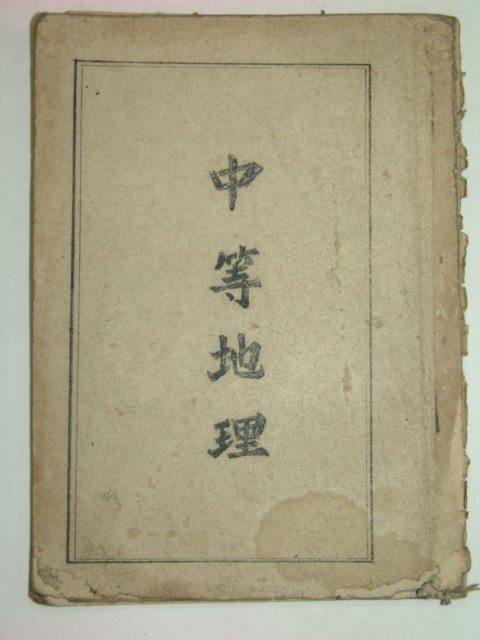 中等地理